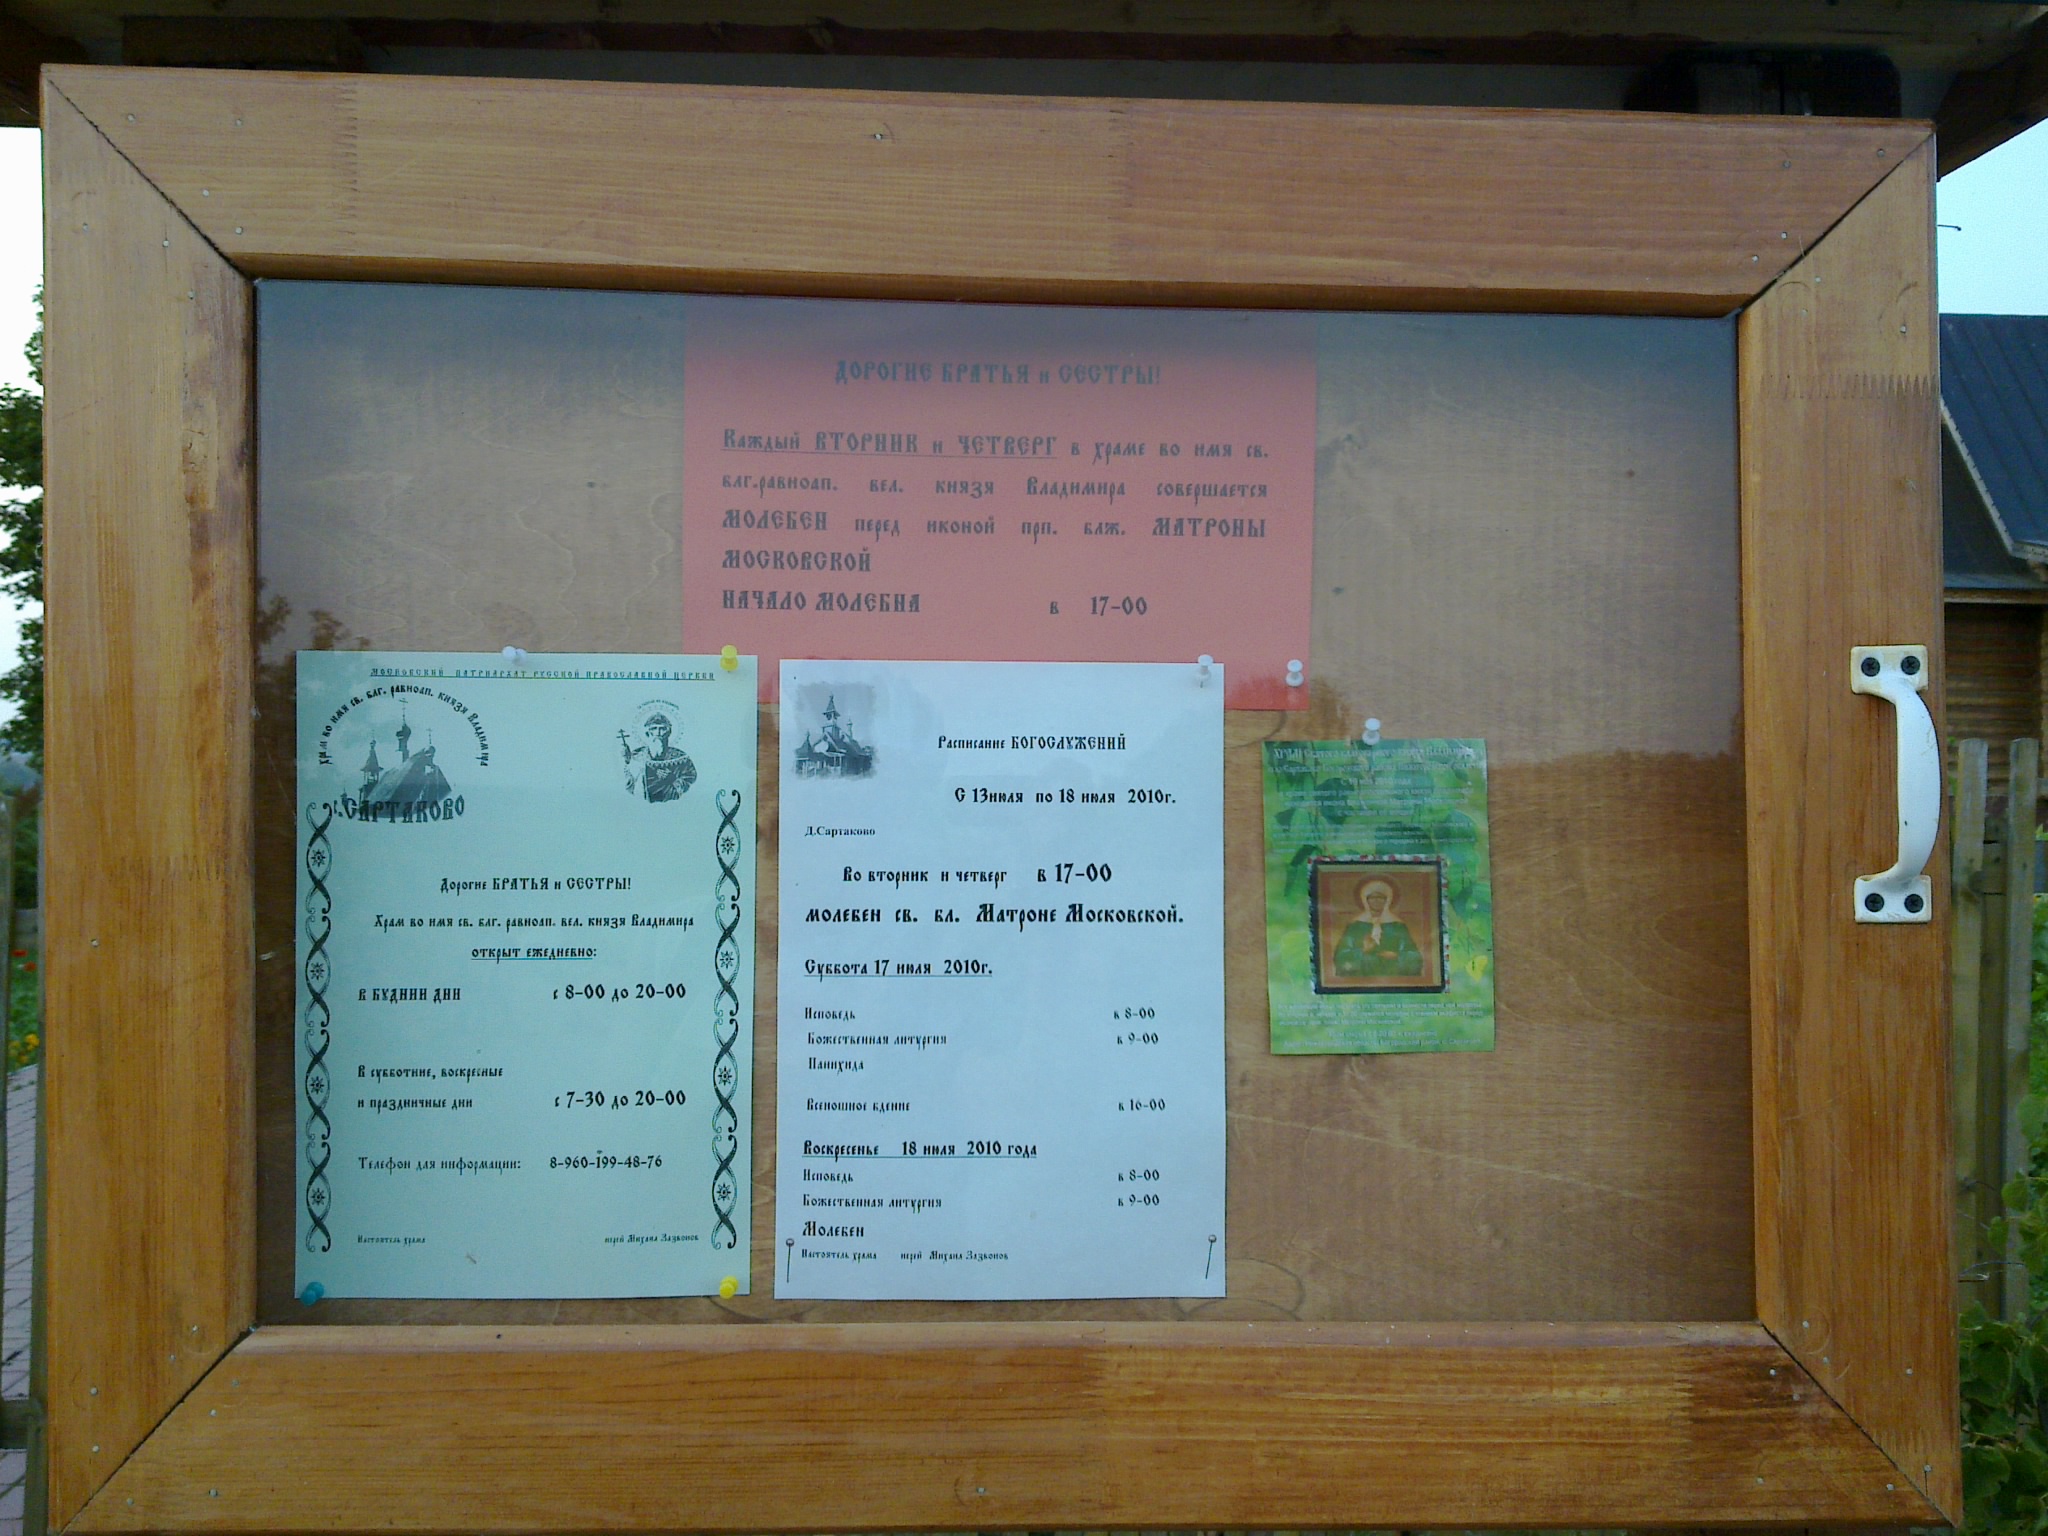 ДОРОГИЕ БРАТЬЯ и СЕСТРЫ!
Каждый ВТОРНИК и ЧЕТВЕРГ в храме во имя св.
блг.равноап. вел. князя Владимира совершается
МОЛЕБЕН перед иконой прп. блж. МАТРОНЫ
МОСКОВСКОЙ
НАЧАЛО МОЛЕБНА в 17-00
МОСКОВСКИЙ ПАТРИАРХАТ РУССКОЙ ПРАВОСЛАВНОЙ ЦЕРКВИ
Храм во имя св. блг. равноап. князя Владимира
с.САРТАКОВО
Дорогие БРАТЬЯ и СЕСТРЫ!
Храм во имя св. блг. равноап. вел. князя Владимира
открыт ежедневно:
в БУДНИИ ДНИ с 8-00 до 20-00
В субботние, воскресные
и праздничные дни с 7-30 до 20-00
Телефон для информации: 8-960-199-48-76
Настоятель храма иерей Михаил Зазвонов
Расписание БОГОСЛУЖЕНИЙ
С 13июля по 18 июля 2010г.
Д.Сартаково
Во вторник и четверг в 17-00
молебен св. бл. Матроне Московской.
Суббота 17 июля 2010г.
Исповедь в 8-00
Божественная литургия в 9-00
Панихида
Всенощное бдение в 16-00
Воскресенье 18 июля 2010 года
Исповедь в 8-00
Божественная литургия в 9-00
Молебен
Настоятель храма иерей Михаил Зазвонов